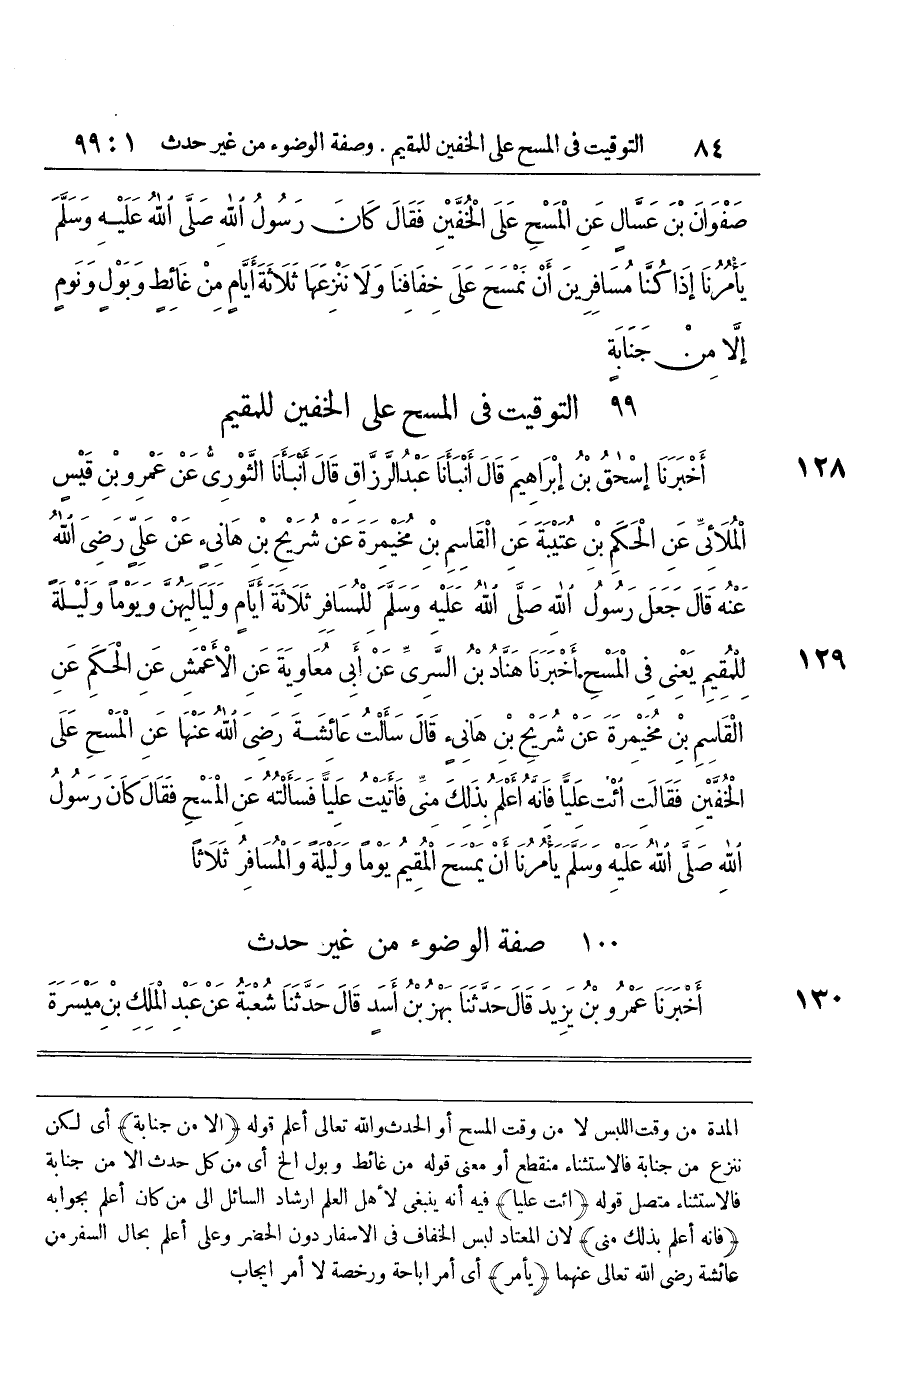 ٨٤ التوقيت فى المسح على الخفين للمقيم . وصفة الوضوء من غير حدث ١ : ٩٩
صَفْوَانَ بْنَ عَسَّالٍ عَنِ الْمَسْحِ عَلَى الْخُفَّيْنِ فَقَالَ كَانَ رَسُولُ اللّٰهِ صَلَّى اللّٰهُ عَلَيْهِ وَسَلَّمَ
يَأْمُرُنَا إِذَا كُنَّا مُسَافِرِينَ أَنْ نَمْسَحَ عَلَى خِفَافِنَا وَلَا نَنْزِعَهَا ثَلَاثَةَ أَيَّامٍ مِنْ غَائِطٍ وَبَوْلٍ وَنَوْمٍ
إِلَّا مِنْ جَنَابَةٍ
٩٩ التوقيت فى المسح على الخفين للمقيم
١٢٨ أَخْبَرَنَا إِسْحٰقُ بْنُ إِبْرَاهِيمَ قَالَ أَنْبَأَنَا عَبْدُ الرَّزَّاقِ قَالَ أَنْبَأَنَا الثَّوْرِىُّ عَنْ عَمْرِو بْنِ قَيْسٍ
الْمُلَائِىِّ عَنِ الْحَكَمِ بْنِ عُتَيْبَةَ عَنِ الْقَاسِمِ بْنِ مُخَيْمِرَةَ عَنْ شُرَيْحِ بْنِ هَانِىءٍ عَنْ عَلِىٍّ رَضِىَ اللّٰهُ
عَنْهُ قَالَ جَعَلَ رَسُولُ اللّٰهِ صَلَّى اللّٰهُ عَلَيْهِ وَسَلَّمَ لِلْمُسَافِرِ ثَلَاثَةَ أَيَّامٍ وَلَيَالِيَهُنَّ وَيَوْمًا وَلَيْلَةً
١٢٩ لِلْمُقِيمِ يَعْنِى فِى الْمَسْحِ. أَخْبَرَنَا هَنَّادُ بْنُ السَّرِىِّ عَنْ أَبِى مُعَاوِيَةَ عَنِ الْأَعْمَشِ عَنِ الْحَكَمِ عَنِ
الْقَاسِمِ بْنِ مُخَيْمِرَةَ عَنْ شُرَيْحِ بْنِ هَانِىءٍ قَالَ سَأَلْتُ عَائِشَةَ رَضِىَ اللّٰهُ عَنْهَا عَنِ الْمَسْحِ عَلَى
الْخُفَّيْنِ فَقَالَتِ ائْتِ عَلِيًّا فَإِنَّهُ أَعْلَمُ بِذَلِكَ مِنِّى فَأَتَيْتُ عَلِيًّا فَسَأَلْتُهُ عَنِ الْمَسْحِ فَقَالَ كَانَ رَسُولُ
اللّٰهِ صَلَّى اللّٰهُ عَلَيْهِ وَسَلَّمَ يَأْمُرُنَا أَنْ يَمْسَحَ الْمُقِيمُ يَوْمًا وَلَيْلَةً وَالْمُسَافِرُ ثَلَاثًا
١٠٠ صفة الوضوء من غير حدث
١٣٠ أَخْبَرَنَا عَمْرُو بْنُ يَزِيدَ قَالَ حَدَّثَنَا بَهْزُ بْنُ أَسَدٍ قَالَ حَدَّثَنَا شُعْبَةُ عَنْ عَبْدِ الْمَلِكِ بْنِ مَيْسَرَةَ
المدة من وقت اللبس لا من وقت المسح أو الحدث والله تعالى أعلم قوله ﴿الا من جنابة﴾ أى لكن
ننزع من جنابة فالاستثناء منقطع أو معنى قوله من غائط وبول الخ أى من كل حدث الا من جنابة
فالاستثناء متصل قوله ﴿ائت عليا﴾ فيه أنه ينبغى لأهل العلم ارشاد السائل الى من كان أعلم بجوابه
﴿فانه أعلم بذلك منى﴾ لان المعتاد لبس الخفاف فى الاسفار دون الحضر وعلى أعلم بحال السفر من
عائشة رضى الله تعالى عنهما ﴿يأمر﴾ أى أمر اباحة ورخصة لا أمر ايجاب